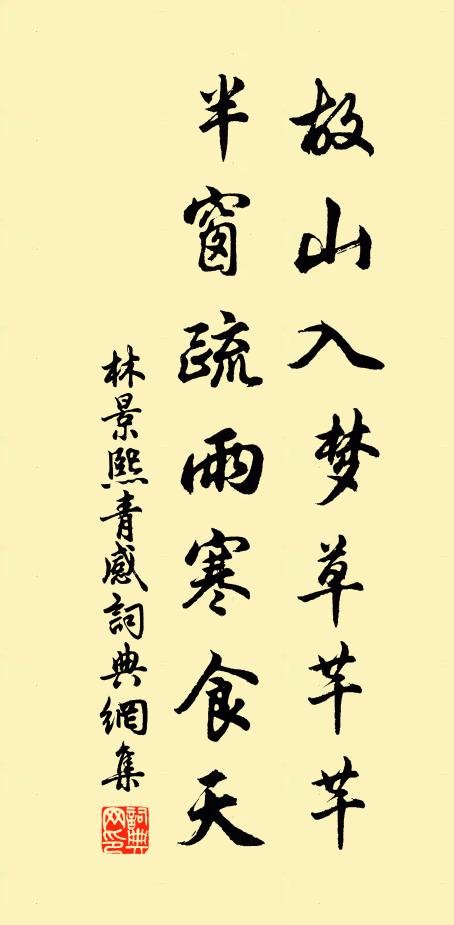 故山入梦草芊芊
半窗疏雨寒食天
林景熙青感詞典網集
詞典网印